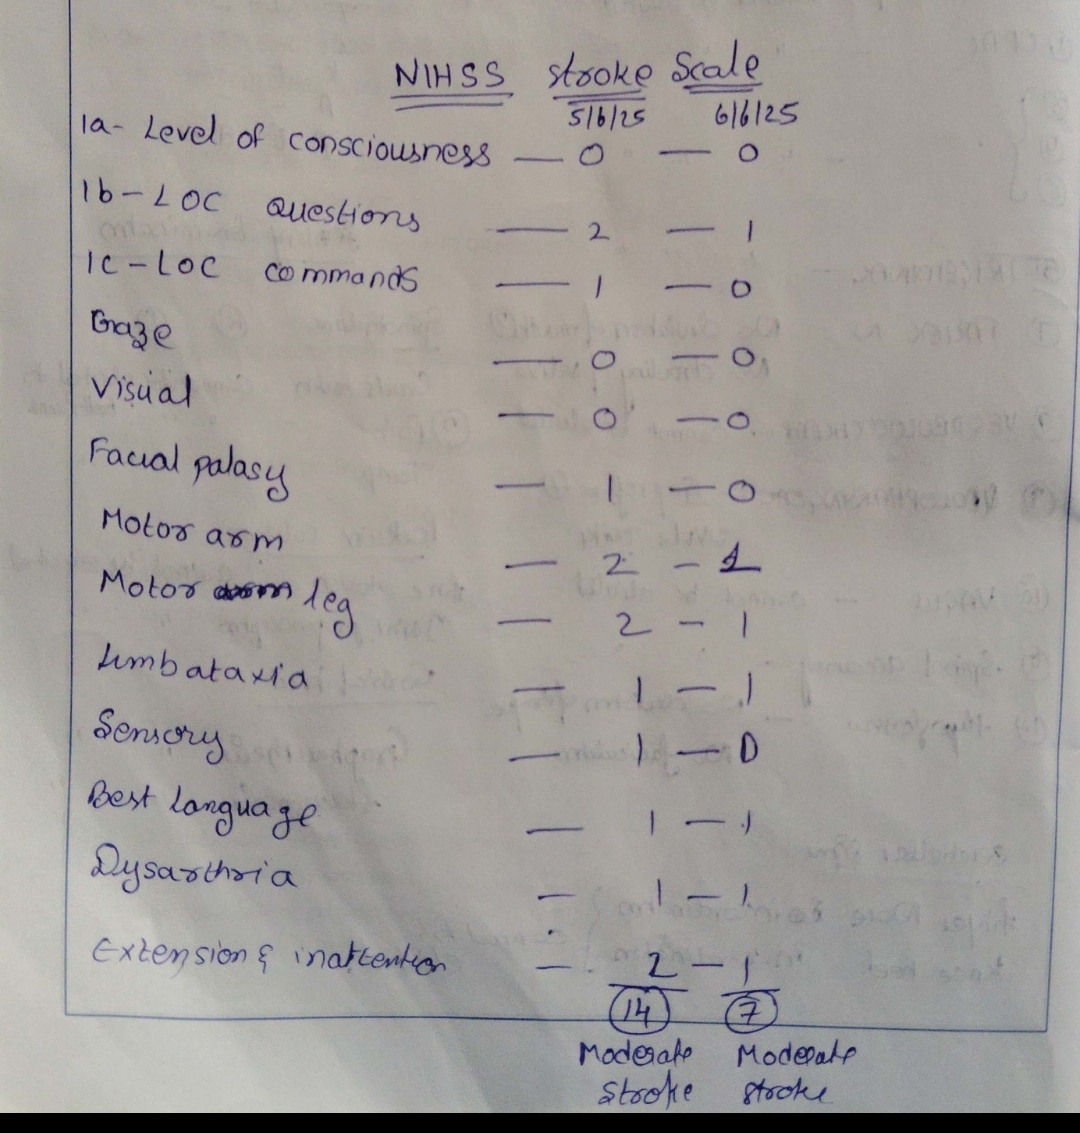 NIHSS stroke Scale
5/6/25 6/6/25
1a- Level of consciousness — 0 — 0
1b - LOC questions — 2 — 1
1c - LOC commands — 1 — 0
Gaze — 0 — 0
Visual — 0 — 0
Facial palasy — 1 — 0
Motor arm — 2 - 1
Motor leg — 2 - 1
Limb ataxia — 1 — 1
Sensory — 1 — 0
Best language — 1 — 1
Dysarthria — 1 - 1
Extension & inattention — 2 - 1
14 7
Moderate Moderate
Stroke stroke